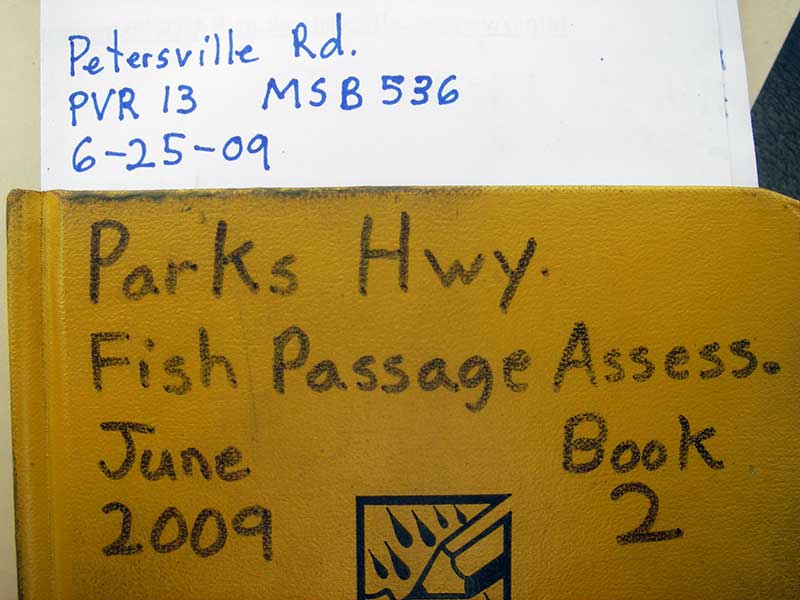 Petersville Rd.
PVR 13 MSB 536
6-25-09
Parks Hwy.
Fish Passage Assess.
June Book
2009 2